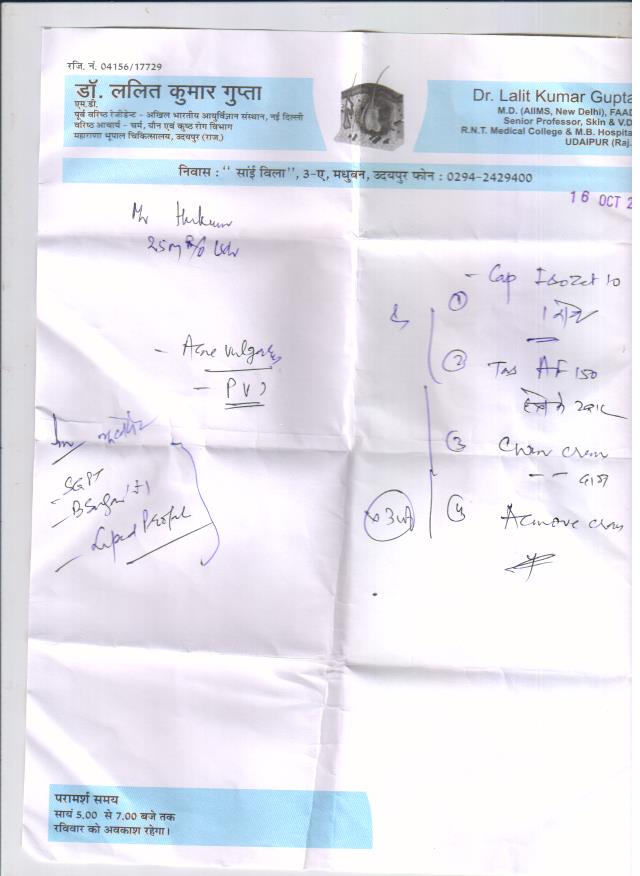 रजि. नं. 04156/17729
डॉ. ललित कुमार गुप्ता
एम.डी.
पूर्व वरिष्ठ रेजीडेन्ट - अखिल भारतीय आयुर्विज्ञान संस्थान, नई दिल्ली
वरिष्ठ आचार्य - चर्म, यौन एवं कुष्ठ रोग विभाग
महाराणा भूपाल चिकित्सालय, उदयपुर (राज.)
Dr. Lalit Kumar Gupta
M.D. (AIIMS, New Delhi), FAAD
Senior Professor, Skin & V.D
R.N.T. Medical College & M.B. Hospita
UDAIPUR (Raj.
निवास : " सांई विला", 3-ए, मधुबन, उदयपुर फोन : 0294-2429400
16 OCT 2
Mr
25
- Acne vulgaris
- PV
- SGPT
- B Sugar
- Lipid Profile
- Cap Isozet 10
①
② Tab AF 150
③ cream
④ Acmove cream
परामर्श समय
सायं 5.00 से 7.00 बजे तक
रविवार को अवकाश रहेगा।